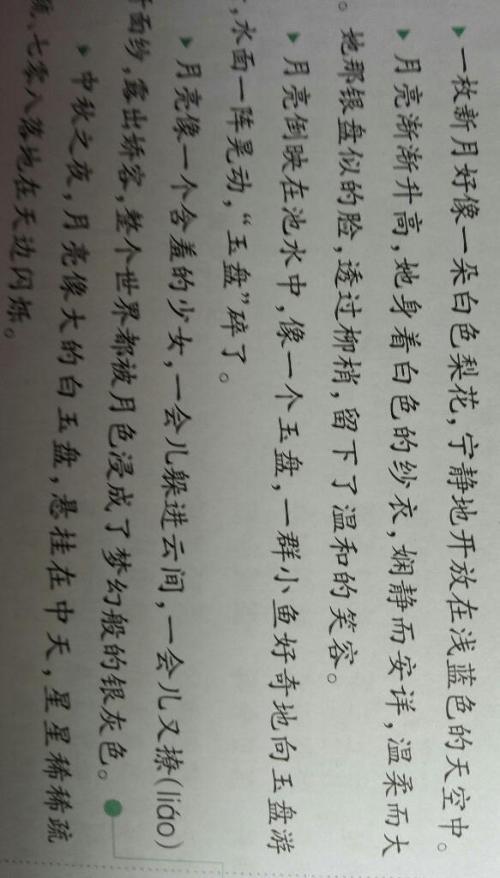 ▶一枚新月好像一朵白色梨花,宁静地开放在浅蓝色的天空中。
▶月亮渐渐升高,她身着白色的纱衣,娴静而安详,温柔而大
。她那银盘似的脸,透过柳梢,留下了温和的笑容。
▶月亮倒映在池水中,像一个玉盘,一群小鱼好奇地向玉盘游
,水面一阵晃动,“玉盘”碎了。
▶月亮像一个含羞的少女,一会儿躲进云间,一会儿又撩(liáo)
面纱,露出娇容,整个世界都被月色浸成了梦幻般的银灰色。
▶中秋之夜,月亮像大的白玉盘,悬挂在中天,星星稀稀疏
、七零八落地在天边闪烁。